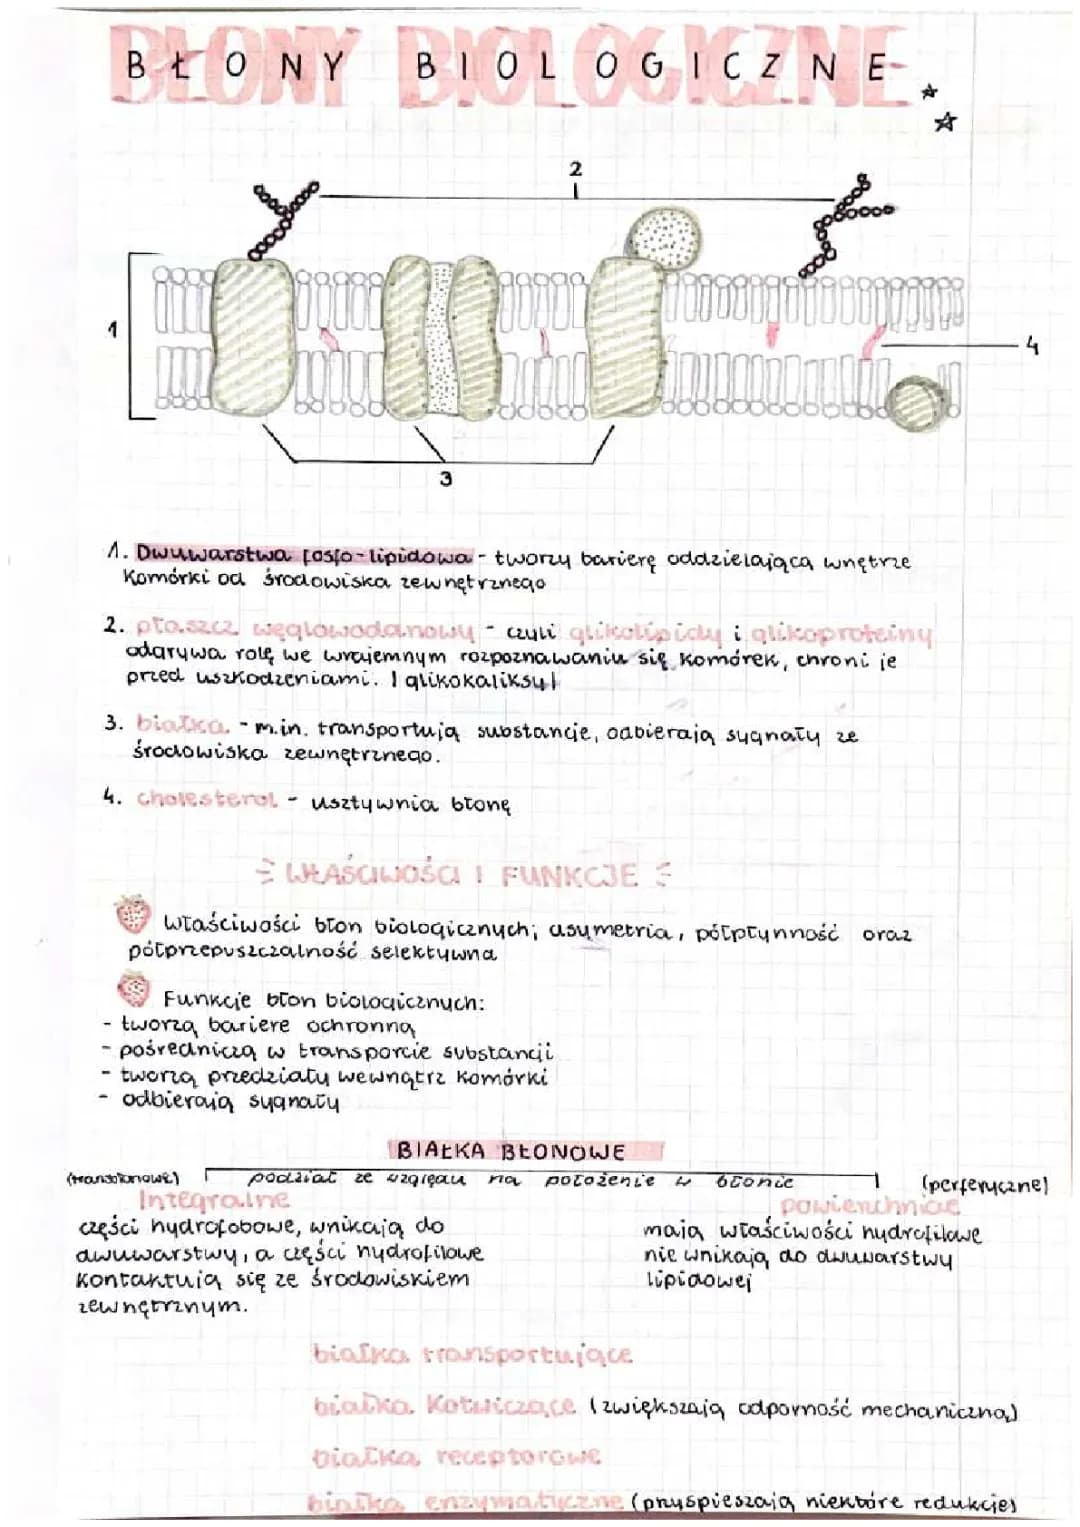 BŁONY BIOLOGICZNE
2
1
4
3
1. Dwuwarstwa fosfo-lipidowa - tworzy barierę oddzielającą wnętrze
komórki od środowiska zewnętrznego
2. płaszcz węglowodanowy - czyli glikolipidy i glikoproteiny
odgrywa rolę we wzajemnym rozpoznawaniu się komórek, chroni je
przed uszkodzeniami. | glikokaliksy |
3. białka - m.in. transportują substancje, odbierają sygnały ze
środowiska zewnętrznego.
4. cholesterol - usztywnia błonę
WŁAŚCIWOŚCI I FUNKCJE
właściwości błon biologicznych; asymetria, półpłynność oraz
półprzepuszczalność selektywna
Funkcje błon biologicznych:
- tworzą bariere ochronną
- pośredniczą w transporcie substancji
- tworzą przedziały wewnątrz komórki
- odbierają sygnały
BIAŁKA BŁONOWE
(transbłonowe) podział ze względu na położenie w błonie (peryferyczne)
Integralne powierzchniowe
części hydrofobowe, wnikają do
dwuwarstwy, a części hydrofilowe
kontaktują się ze środowiskiem
zewnętrznym.
mają właściwości hydrofilowe
nie wnikają do dwuwarstwy
lipidowej
białka transportujące
białka kotwiczące (zwiększają odporność mechaniczną)
białka receptorowe
białka enzymatyczne (przyspieszają niektóre redukcje)